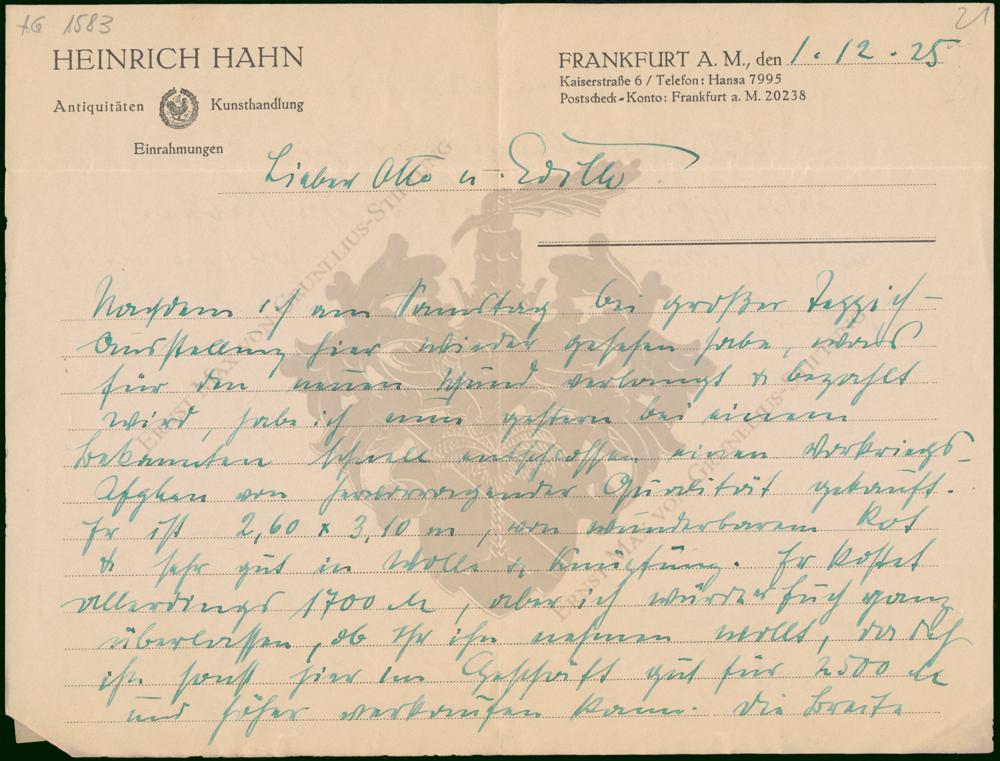 AG 1583
21
HEINRICH HAHN
Antiquitäten Kunsthandlung
Einrahmungen
FRANKFURT A. M., den 1. 12. 25
Kaiserstraße 6 / Telefon: Hansa 7995
Postscheck-Konto: Frankfurt a. M. 20238
Lieber Otto u. Edith
Nachdem ich am Samstag bei großer Teppich-
Ausstellung hier wieder gesehen habe, was
für den neuen Schund verlangt & bezahlt
wird, habe ich nun gestern bei einem
Bekannten schnell entschlossen einen Vorkriegs-
Afghan von hervorragender Qualität gekauft.
Er ist 2,60 x 3,10 m, von wunderbarem Rot
& sehr gut in Wolle & Knüpfung. Er kostet
allerdings 1700 M, aber ich würde es Euch ganz
überlassen, ob Ihr ihn nehmen wollt, da ich
ihn sonst hier im Geschäft gut für 2500 M
und höher verkaufen kann. Die Breite
ERNST MAX VON GRUNELIUS-STIFTUNG
ERNST MAX VON GRUNELIUS-STIFTUNG